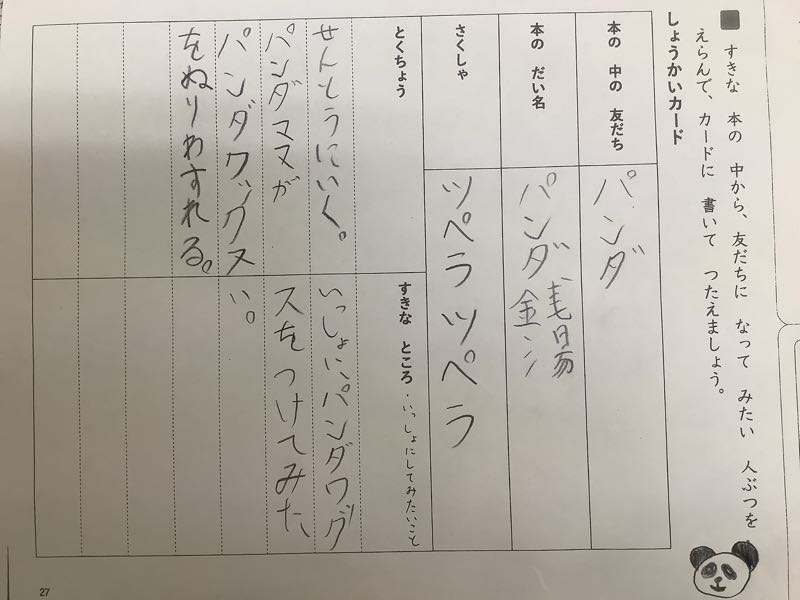 ■ すきな 本の 中から、友だちに なって みたい 人ぶつを
えらんで、カードに 書いて つたえましょう。
しょうかいカード
本の 中の 友だち
パンダ
本の だい名
パンダ銭湯
さくしゃ
ツペラ ツペラ
とくちょう
せんとうにいく。
パンダママが
パンダワックス
をぬりわすれる。
すきな ところ・いっしょにしてみたいこと
いっしょに、パンダワグ
スをつけてみた
い。
27